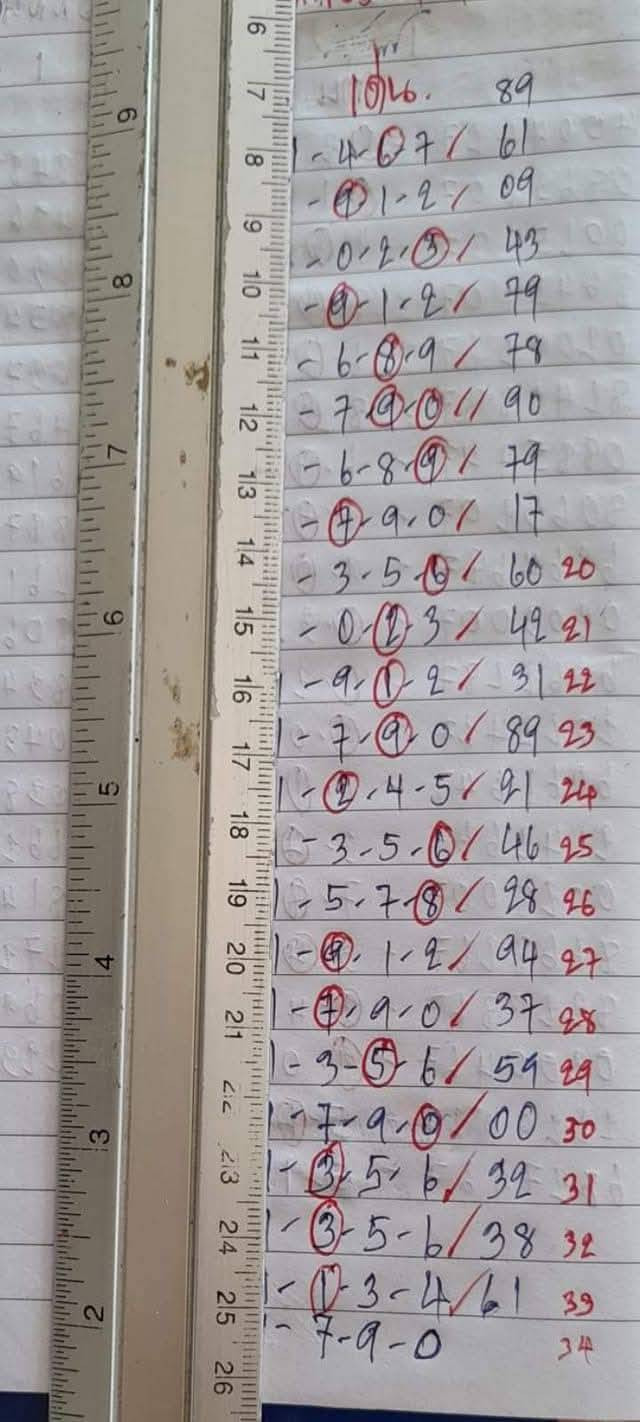 เด่น. 89
- 4-6-7 / 61
- 9-1-2 / 09
- 0-2-3 / 43
- 9-1-2 / 79
- 6-8-9 / 78
- 7-9-0 // 90
- 6-8-9 / 79
- 7-9-0 / 17
- 3-5-6 / 60 20
- 0-2-3 / 42 21
- 9-1-2 / 31 22
- 7-9-0 / 89 23
- 2-4-5 / 21 24
- 3-5-6 / 46 25
- 5-7-8 / 28 26
- 9-1-2 / 94 27
- 7-9-0 / 37 28
- 3-5-6 / 59 29
- 7-9-0 / 00 30
- 3-5-6 / 32 31
- 3-5-6 / 38 32
- 1-3-4 / 61 33
- 7-9-0 34
6 7 8 9 10 11 12 13 14 15 16 17 18 19 20 21 22 23 24 25 26
9 8 7 6 5 4 3 2